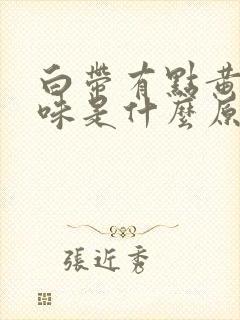 白帶有點黃
味是什麼原
張近秀